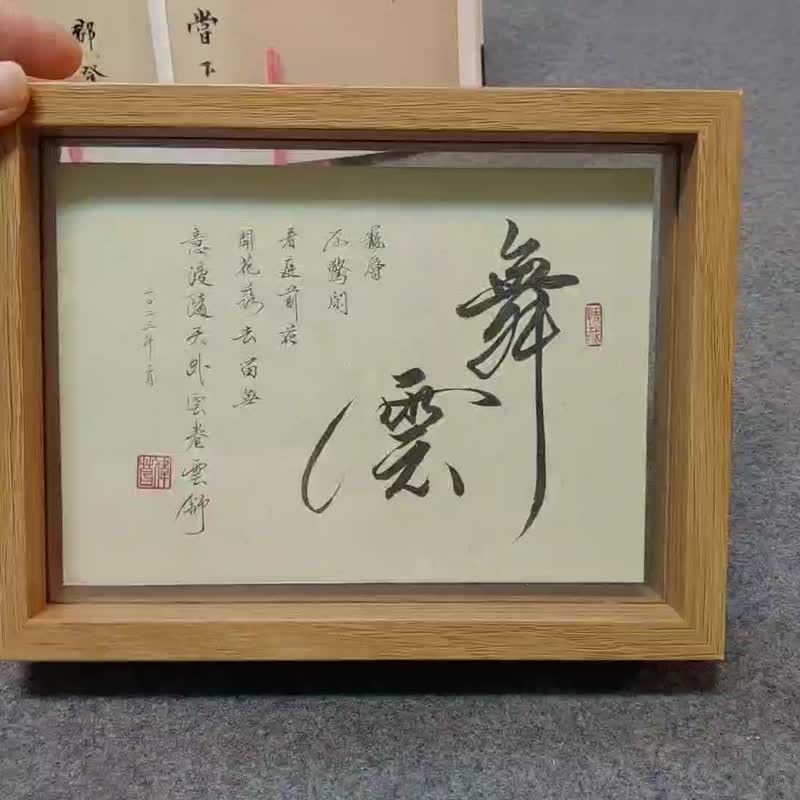 舞雲
寵辱
不驚閒
看庭前花
開花落去留無
意漫隨天外雲卷雲舒
二〇二三年
當下